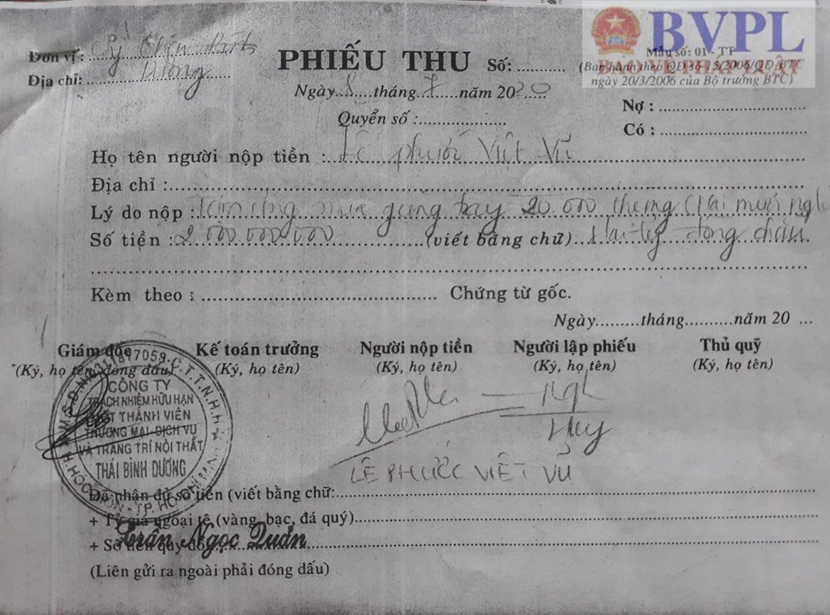 BVPL
BẢO VỆ PHÁP LUẬT
Đơn vị: Cty Thái Bình
Địa chỉ: Dương
PHIẾU THU Số: ............
Mẫu số: 01 - TT
(Ban hành theo QĐ số 15/2006/QĐ-BTC
ngày 20/3/2006 của Bộ trưởng BTC)
Ngày 8 tháng 7 năm 2020
Quyển số: ...............
Nợ : .....................
Có : .....................
Họ tên người nộp tiền : Lê phước Việt Vũ
Địa chỉ : ...............
Lý do nộp : Tạm ứng mua găng tay 20.000 thùng (Hai mươi ngh
Số tiền : 2.000.000.000 (viết bằng chữ) Hai tỷ đồng chẵn
Kèm theo : ............... Chứng từ gốc.
Ngày.........tháng.........năm 20 ...
Giám đốc Kế toán trưởng Người nộp tiền Người lập phiếu Thủ quỹ
(Ký, họ tên, đóng dấu) (Ký, họ tên) (Ký, họ tên) (Ký, họ tên) (Ký, họ tên)
M.S.D.N: C.T.T.N.H.H
CÔNG TY
TRÁCH NHIỆM HỮU HẠN
MỘT THÀNH VIÊN
THƯƠNG MẠI-DỊCH VỤ
VÀ TRANG TRÍ NỘI THẤT
THÁI BÌNH DƯƠNG
H.HÓC MÔN - TP. HỒ CHÍ MINH
Huy
LÊ PHƯỚC VIỆT VŨ
Đã nhận đủ số tiền (viết bằng chữ:...............
+ Tỷ giá ngoại tệ (vàng, bạc, đá quý)...............
+ Số tiền quy đổi:...............
Trần Ngọc Quản
(Liên gửi ra ngoài phải đóng dấu)